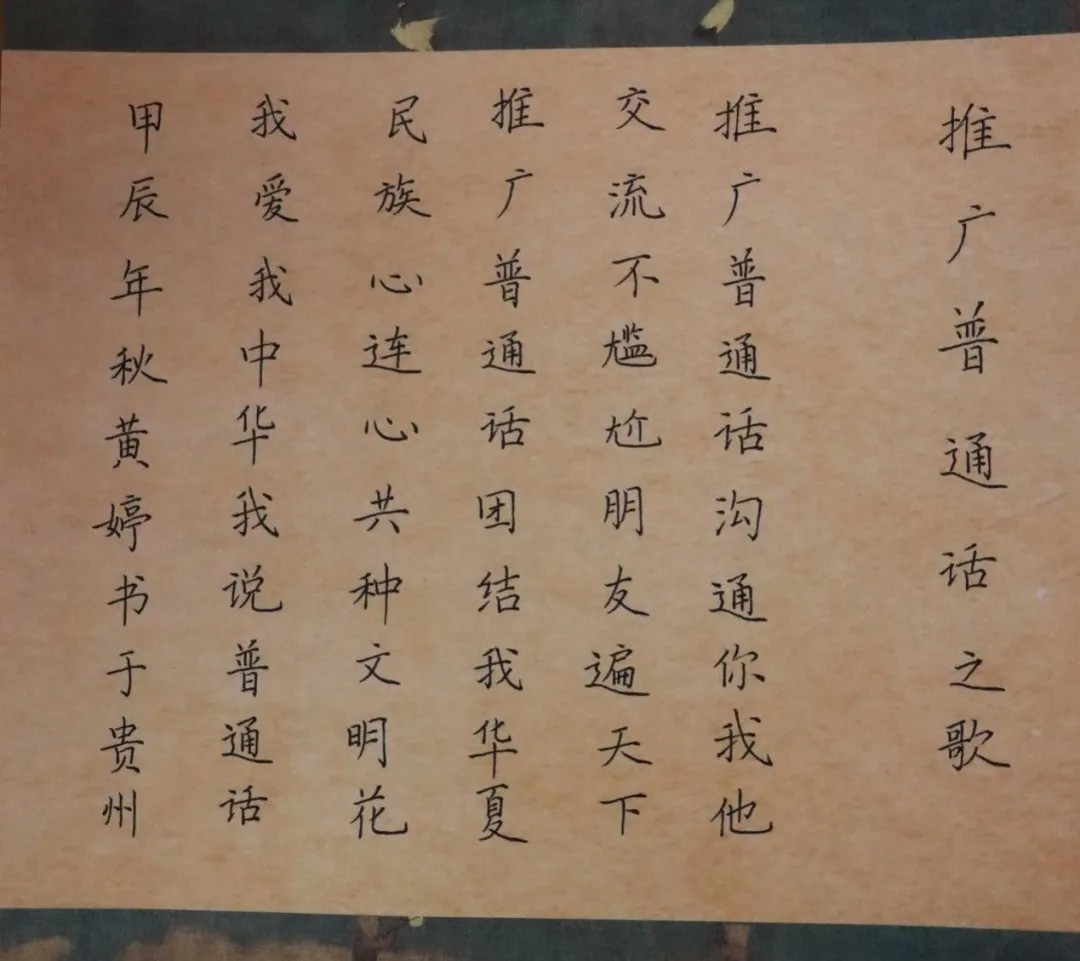 推广普通话之歌
推广普通话沟通你我他
交流不尴尬朋友遍天下
推广普通话团结我华夏
民族心连心共种文明花
我爱我中华我说普通话
甲辰年秋黄婷书于贵州